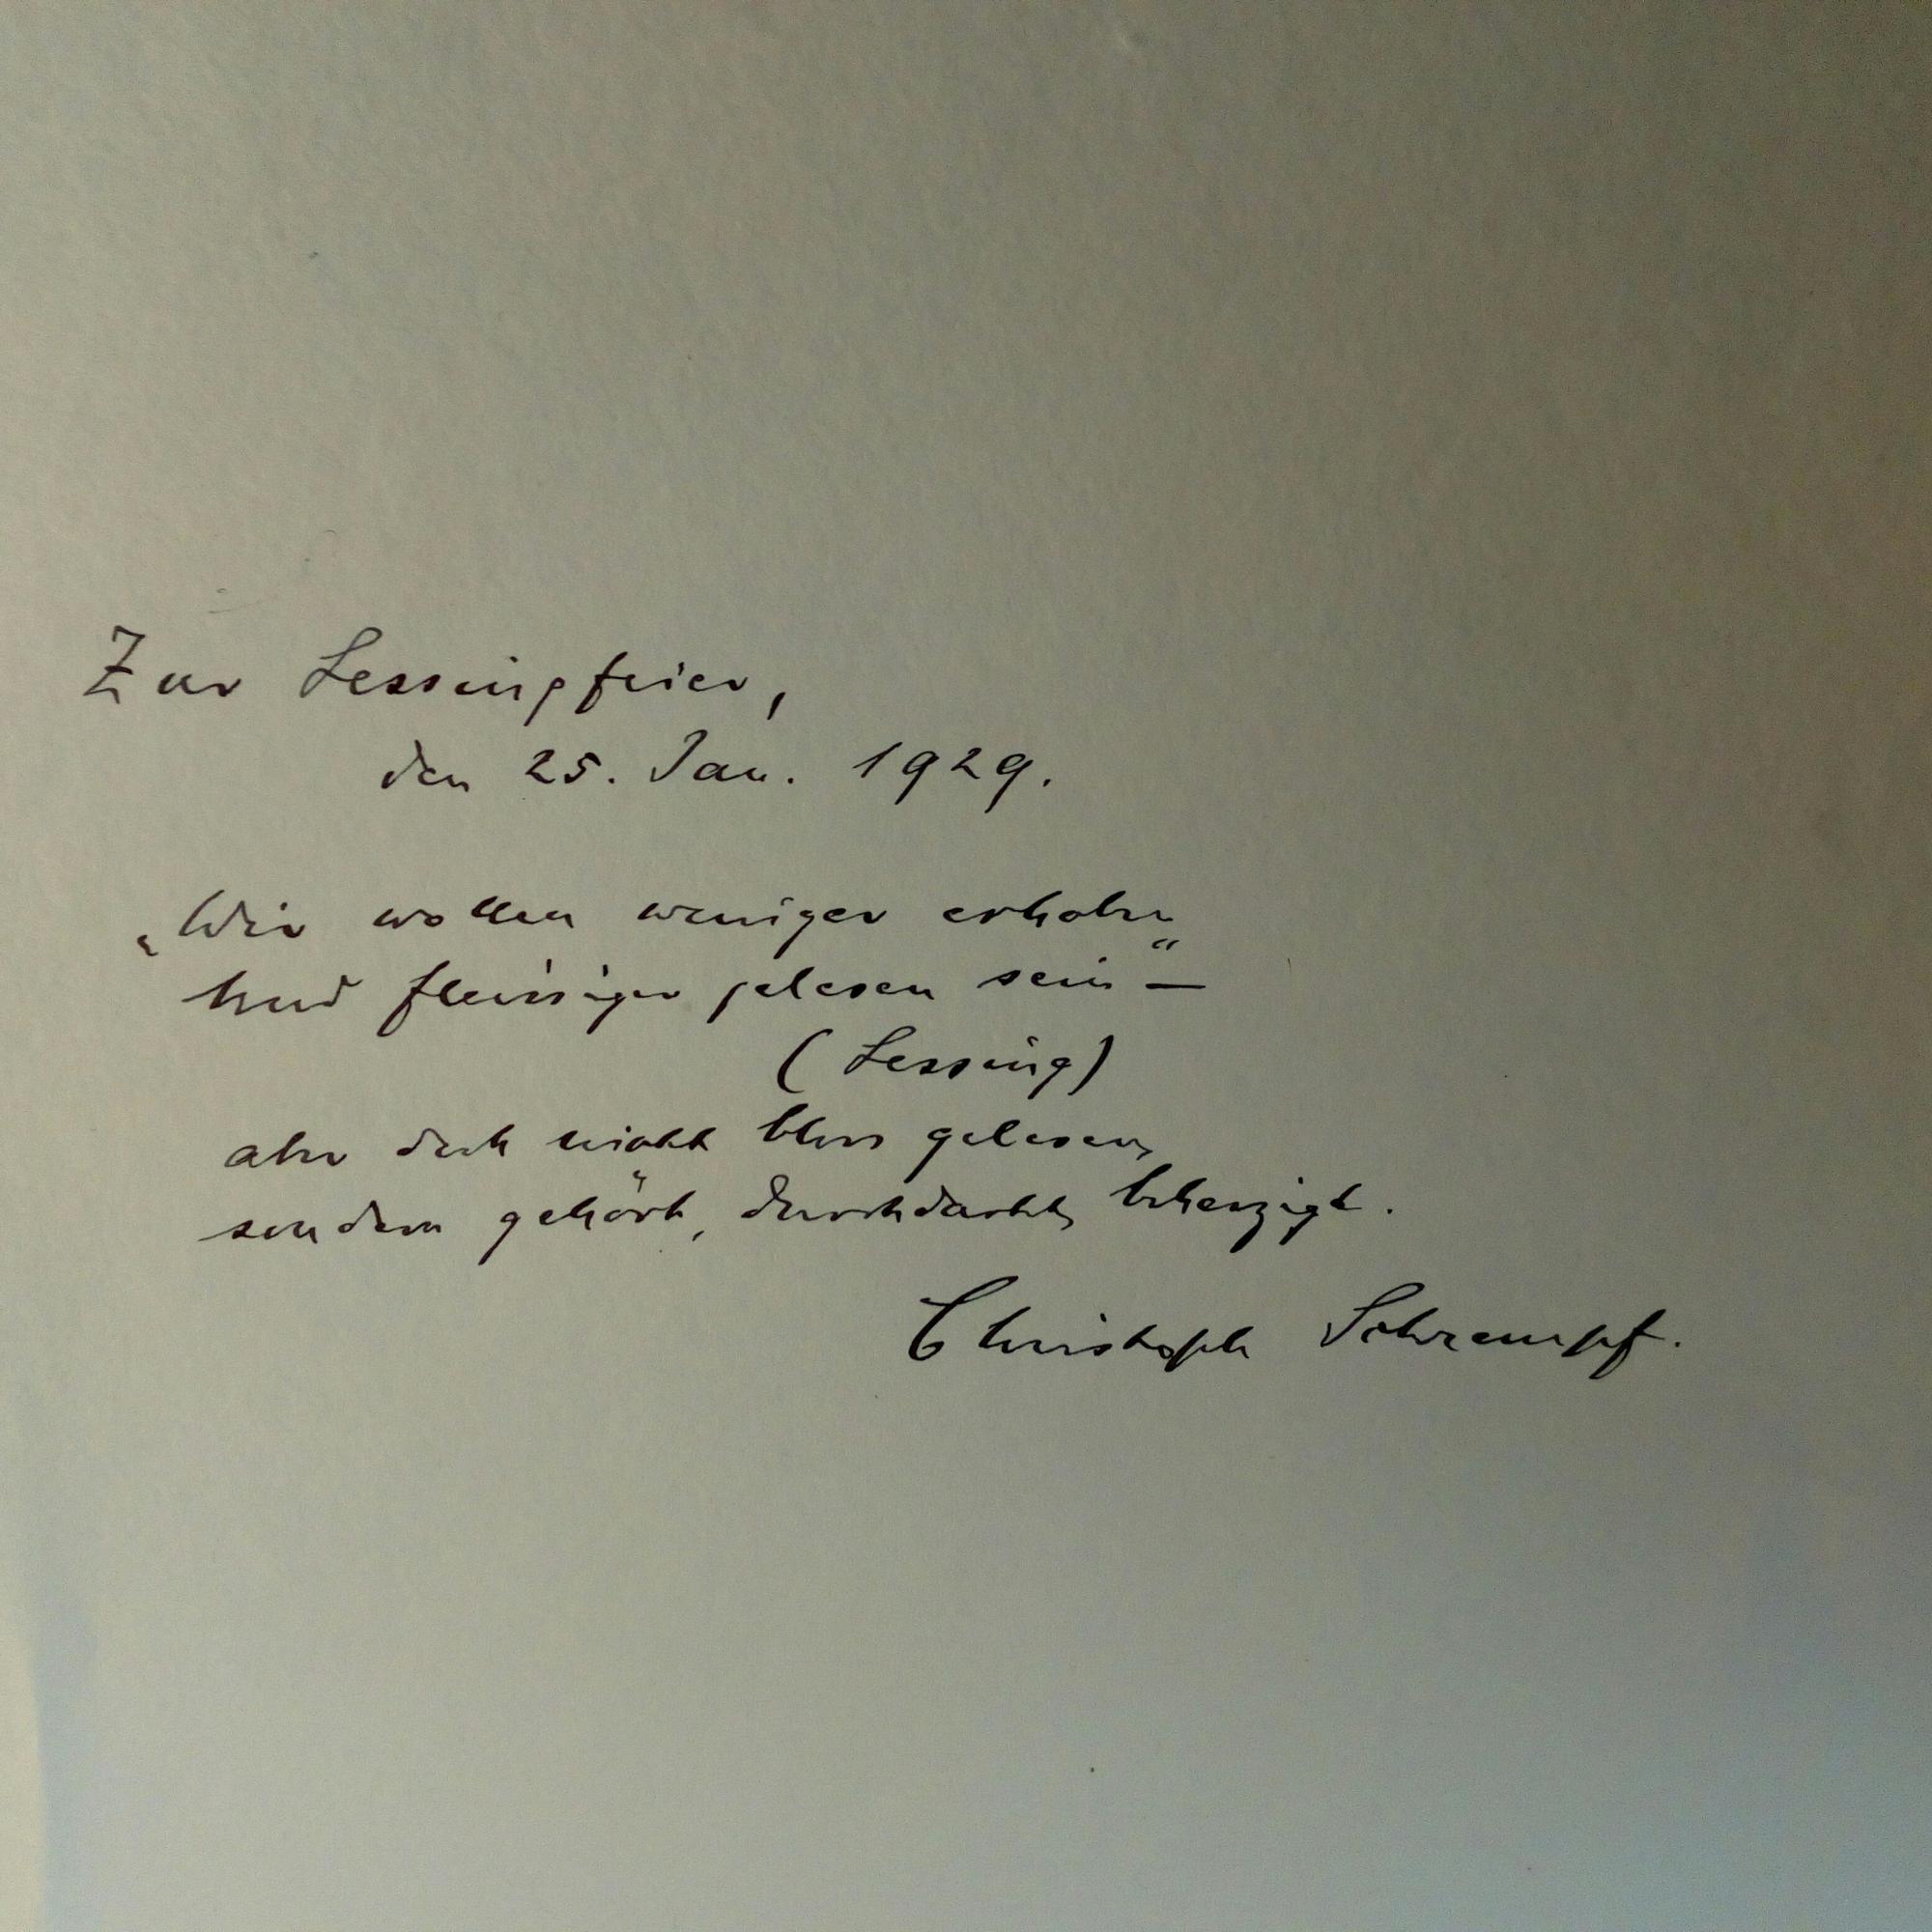 Zur Lessingfeier,
den 25. Jan. 1929.
„Wir wollen weniger erhoben
Und fleissiger gelesen sein“ —
(Lessing)
aber doch nicht bloss gelesen,
sondern gehört, durchdacht, beherzigt.
Christoph Schrempf.